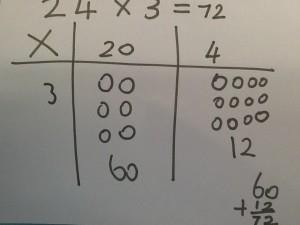 24 × 3 = 72
X 20 4
3 00 0000
00 0000
00 0000
60 12
60
+ 12
72